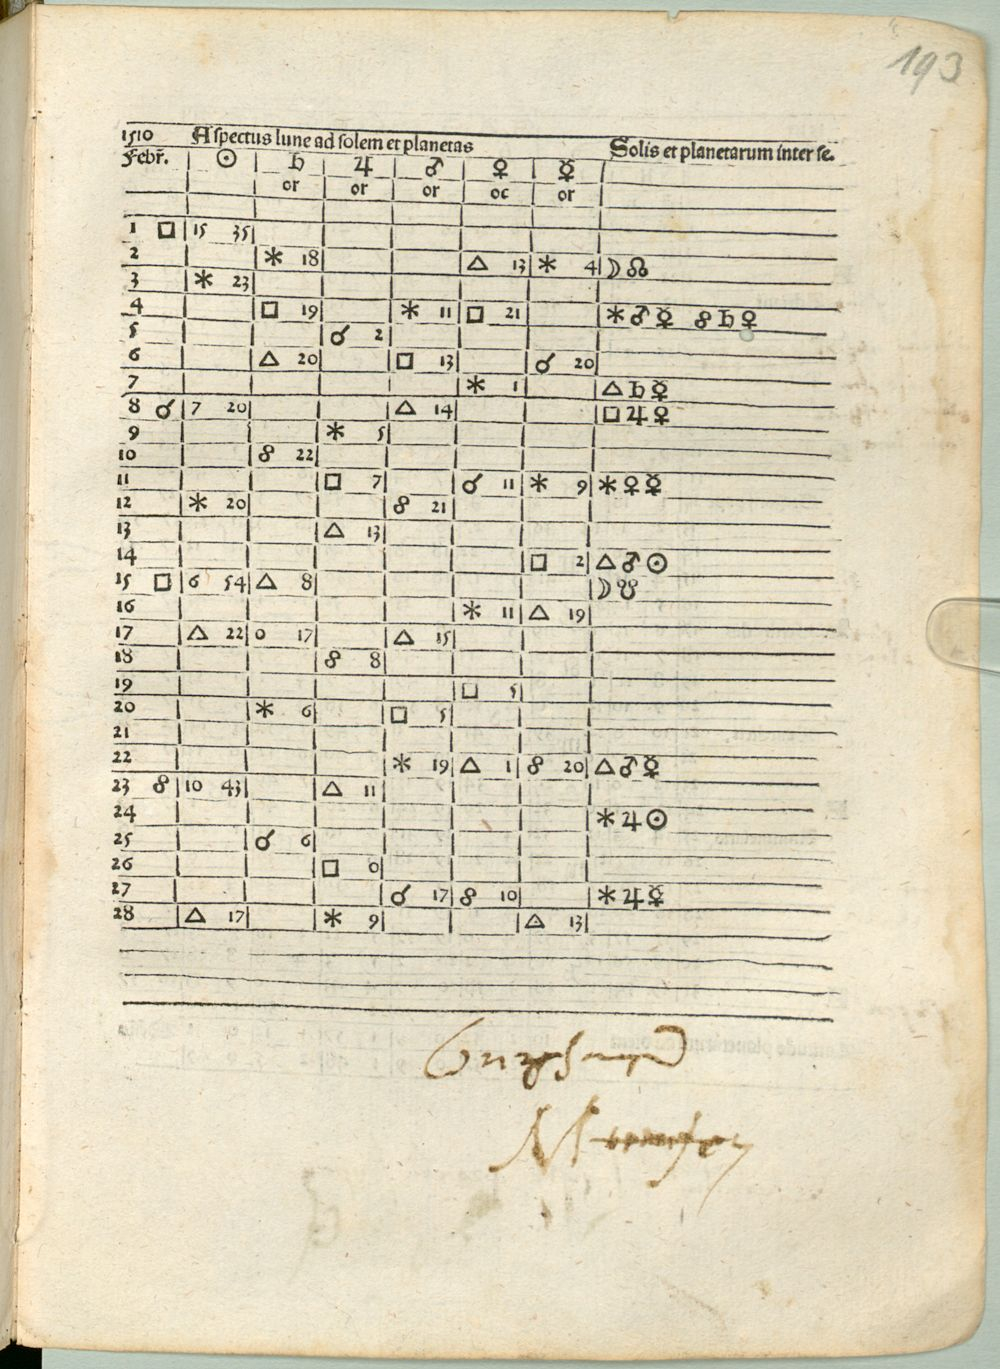 193
1510 Aspectus lune ad solem et planetas Solis et planetarum inter se.
Febr̃. ☉ ♄ ♃ ♂ ♀ ☿
or or or oc or
1 □ 15 35
2 ⚹ 18 △ 13 ⚹ 4 ☽ ☊
3 ⚹ 23
4 □ 19 ⚹ 11 □ 21 ⚹ ♂ ☿ ☍ ♄ ♀
5 ☌ 2
6 △ 20 □ 13 ☌ 20
7 ⚹ 1 △ ♄ ☿
8 ☌ 7 20 △ 14 □ ♃ ♀
9 ⚹ 5
10 ☍ 22
11 □ 7 ☌ 11 ⚹ 9 ⚹ ♀ ☿
12 ⚹ 20 ☍ 21
13 △ 13
14 □ 2 △ ♂ ☉
15 □ 6 54 △ 8 ☽ ☋
16 ⚹ 11 △ 19
17 △ 22 0 17 △ 15
18 ☍ 8
19 □ 5
20 ⚹ 6 □ 5
21
22 ⚹ 19 △ 1 ☍ 20 △ ♂ ☿
23 ☍ 10 43 △ 11
24 ⚹ ♃ ☉
25 ☌ 6
26 □ 0
27 ☌ 17 ☍ 10 ⚹ ♃ ☿
28 △ 17 ⚹ 9 △ 13